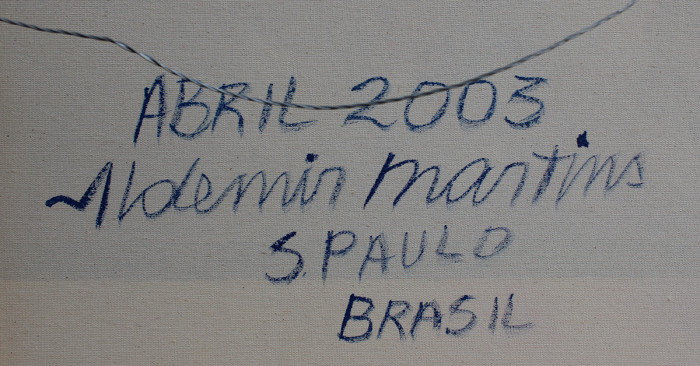 ABRIL 2003
Aldemir Martins
S.PAULO
BRASIL